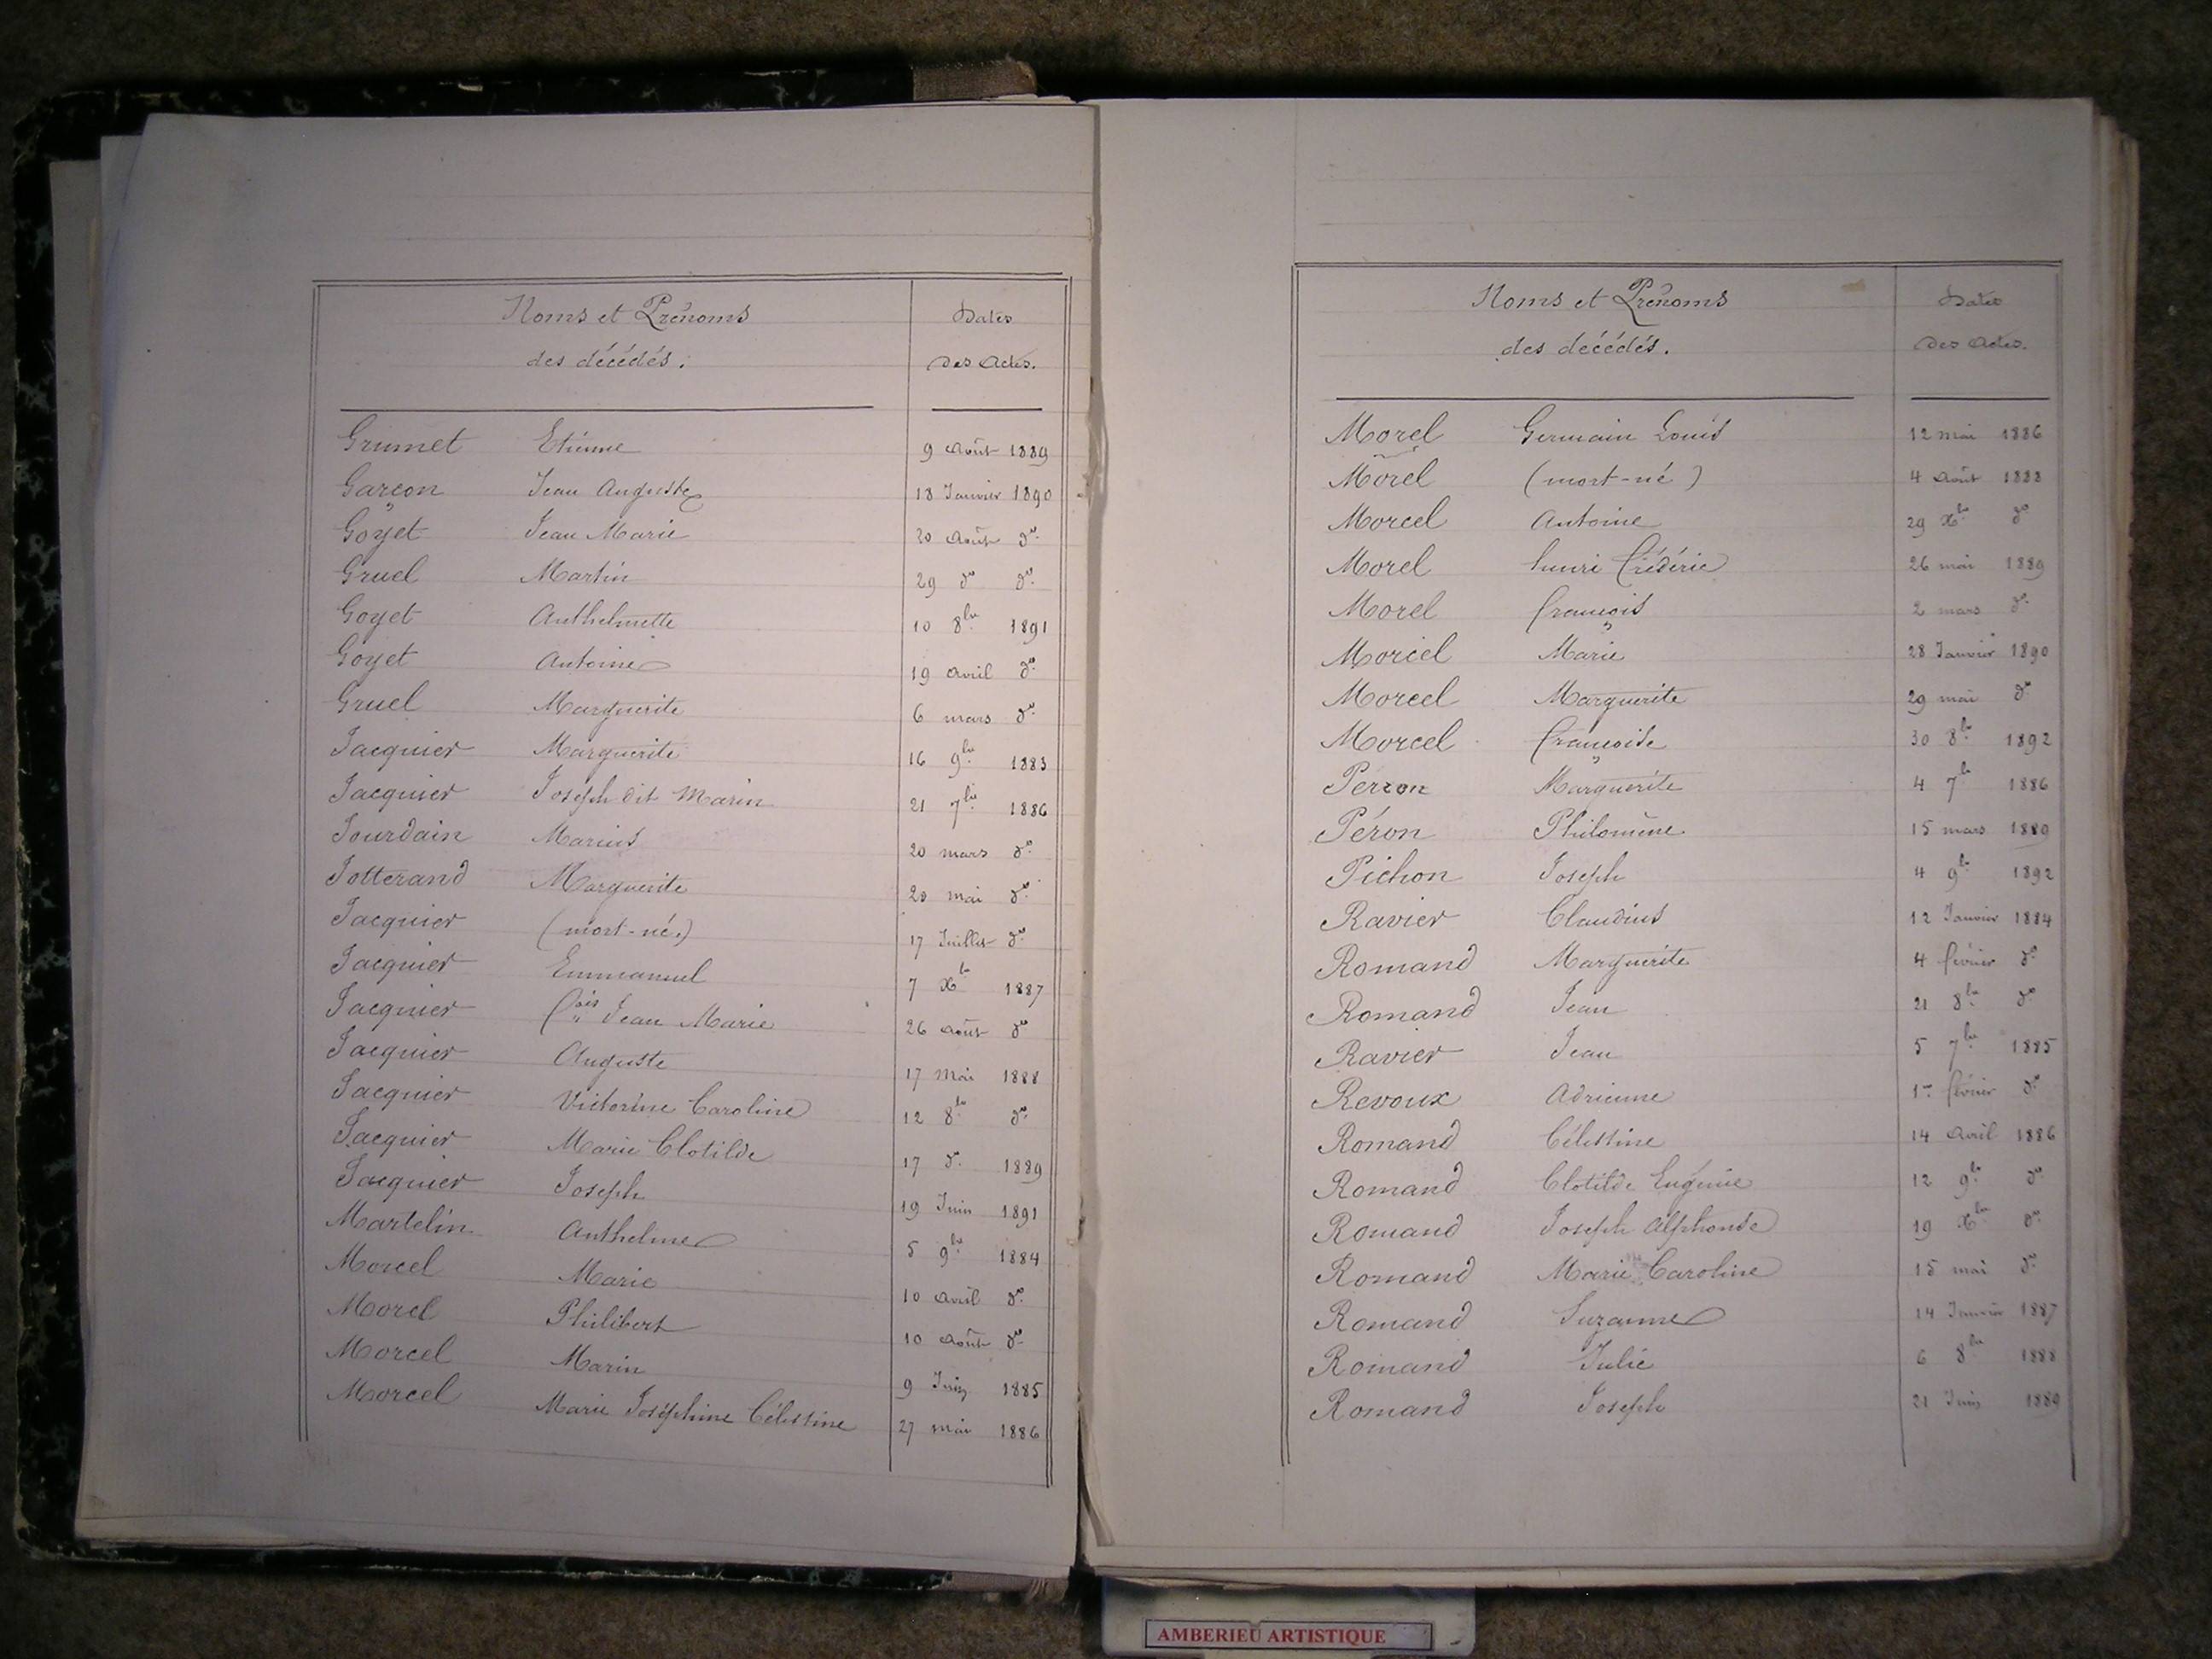 Noms et Prénoms
des décédés.
Dates
des Actes.
Grumet Etienne 9 Août 1889
Garçon Jean Auguste 18 Janvier 1890
Goyet Jean Marie 20 Août do
Gruel Martin 29 do do
Goyet Anthelmette 10 8bre 1891
Goyet Antoine 19 avril do
Gruel Marguerite 6 mars do
Jacquier Marguerite 16 9bre 1883
Jacquier Joseph dit Marin 21 7bre 1886
Jourdain Marius 20 mars do
Jotterand Marguerite 20 mai do
Jacquier (mort-né.) 17 Juillet do
Jacquier Emmanuel 7 Xbre 1887
Jacquier fois Jean Marie 26 août do
Jacquier Auguste 17 Mai 1888
Jacquier Victorine Caroline 12 8bre do
Jacquier Marie Clotilde 17 do 1889
Jacquier Joseph 19 Juin 1891
Martelin Anthelme 5 9bre 1884
Morcel Marie 10 avril do
Morel Philibert 10 août do
Morcel Marin 9 Juin 1885
Morcel Marie Joséphine Célestine 27 mai 1886
Noms et Prénoms
des décédés.
Dates
des Actes.
Morel Germain Louis 12 mai 1886
Morel (mort-né) 4 août 1888
Morcel Antoine 29 Xbre do
Morel henri frédéric 26 mai 1889
Morel françois 2 mars do
Morcel Marie 28 Janvier 1890
Morcel Marguerite 29 mai do
Morcel françoise 30 8bre 1892
Perron Marguerite 4 7b 1886
Péron Philomène 15 mars 1889
Pichon Joseph 4 9b 1892
Ravier Claudius 12 Janvier 1884
Romand Marguerite 4 février do
Romand Jean 21 8bre do
Ravier Jean 5 7bre 1885
Revoux Adrienne 1er février do
Romand Célestine 14 Avril 1886
Romand Clotilde Eugénie 12 9bre do
Romand Joseph Alphonse 19 Xbre do
Romand Marie Caroline 15 mai do
Romand Suzanne 14 Janvier 1887
Romand Julie 6 8bre 1888
Romand Joseph 21 Juin 1889
AMBERIEU ARTISTIQUE